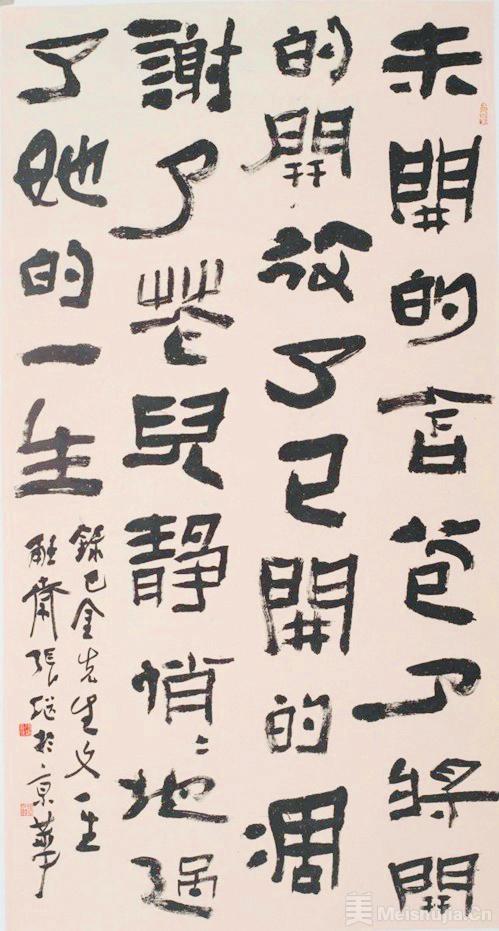 未開的含苞了將開
的開放了已開的凋
謝了花兒靜悄〻地過
了她的一生
錄巴金先生文一
觝齋張继於京華
美 Meishujia.Cn